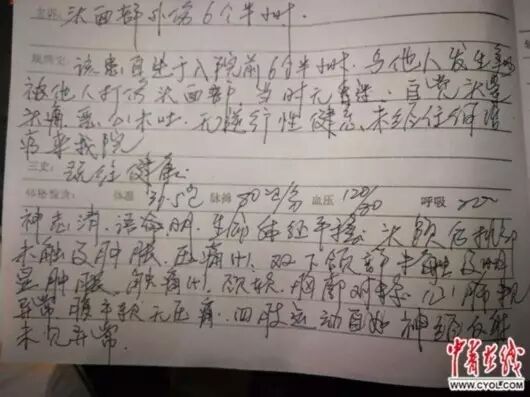 主诉: 头面部外伤6个半小时.
现病史: 该患自述于入院前6个半小时.与他人发生
被他人打伤头面部.当时无昏迷.自觉头晕
头痛.恶心未吐.无逆行性健忘.未经任何治
疗来我院
三史: 既往健康.
体温 36.5℃ 脉搏 80次/分 血压 120/80 呼吸
神志清.语言明.生命体征平稳.头颅
未触及肿胀.压痛(-).双下颌部
显肿胀.触痛(+).颈软.胸廓对称.心肺
异常.腹平软无压痛.四肢运动自如.神经
未见异常.
中青在线
WWW.CYOL.COM